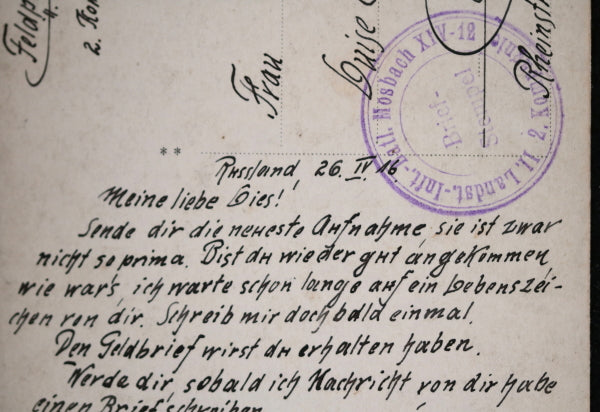 Feldp
2. Kom
Frau
Luise
Rheinstr
II. Landst.-Inft.-Batl. Mosbach XIV-12
2. Kompanie
Brief-
Stempel
**
Russland, 26. IV. 16.
Meine liebe Lies!
Sende dir die neueste Aufnahme, sie ist zwar
nicht so prima. Bist du wieder gut angekommen,
wie war's, ich warte schon lange auf ein Lebenszei-
chen von dir. Schreib mir doch bald einmal.
Den Geldbrief wirst du erhalten haben.
Werde dir, sobald ich Nachricht von dir habe
einen Brief schreiben